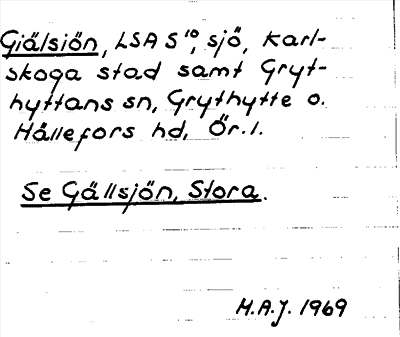 Giälsiön, LSA S¹⁰, sjö, Karl-
skoga stad samt Gryt-
hyttans sn, Grythytte o.
Hällefors hd, Ör. l.
Se Gällsjön, Stora.
M.A.J. 1969